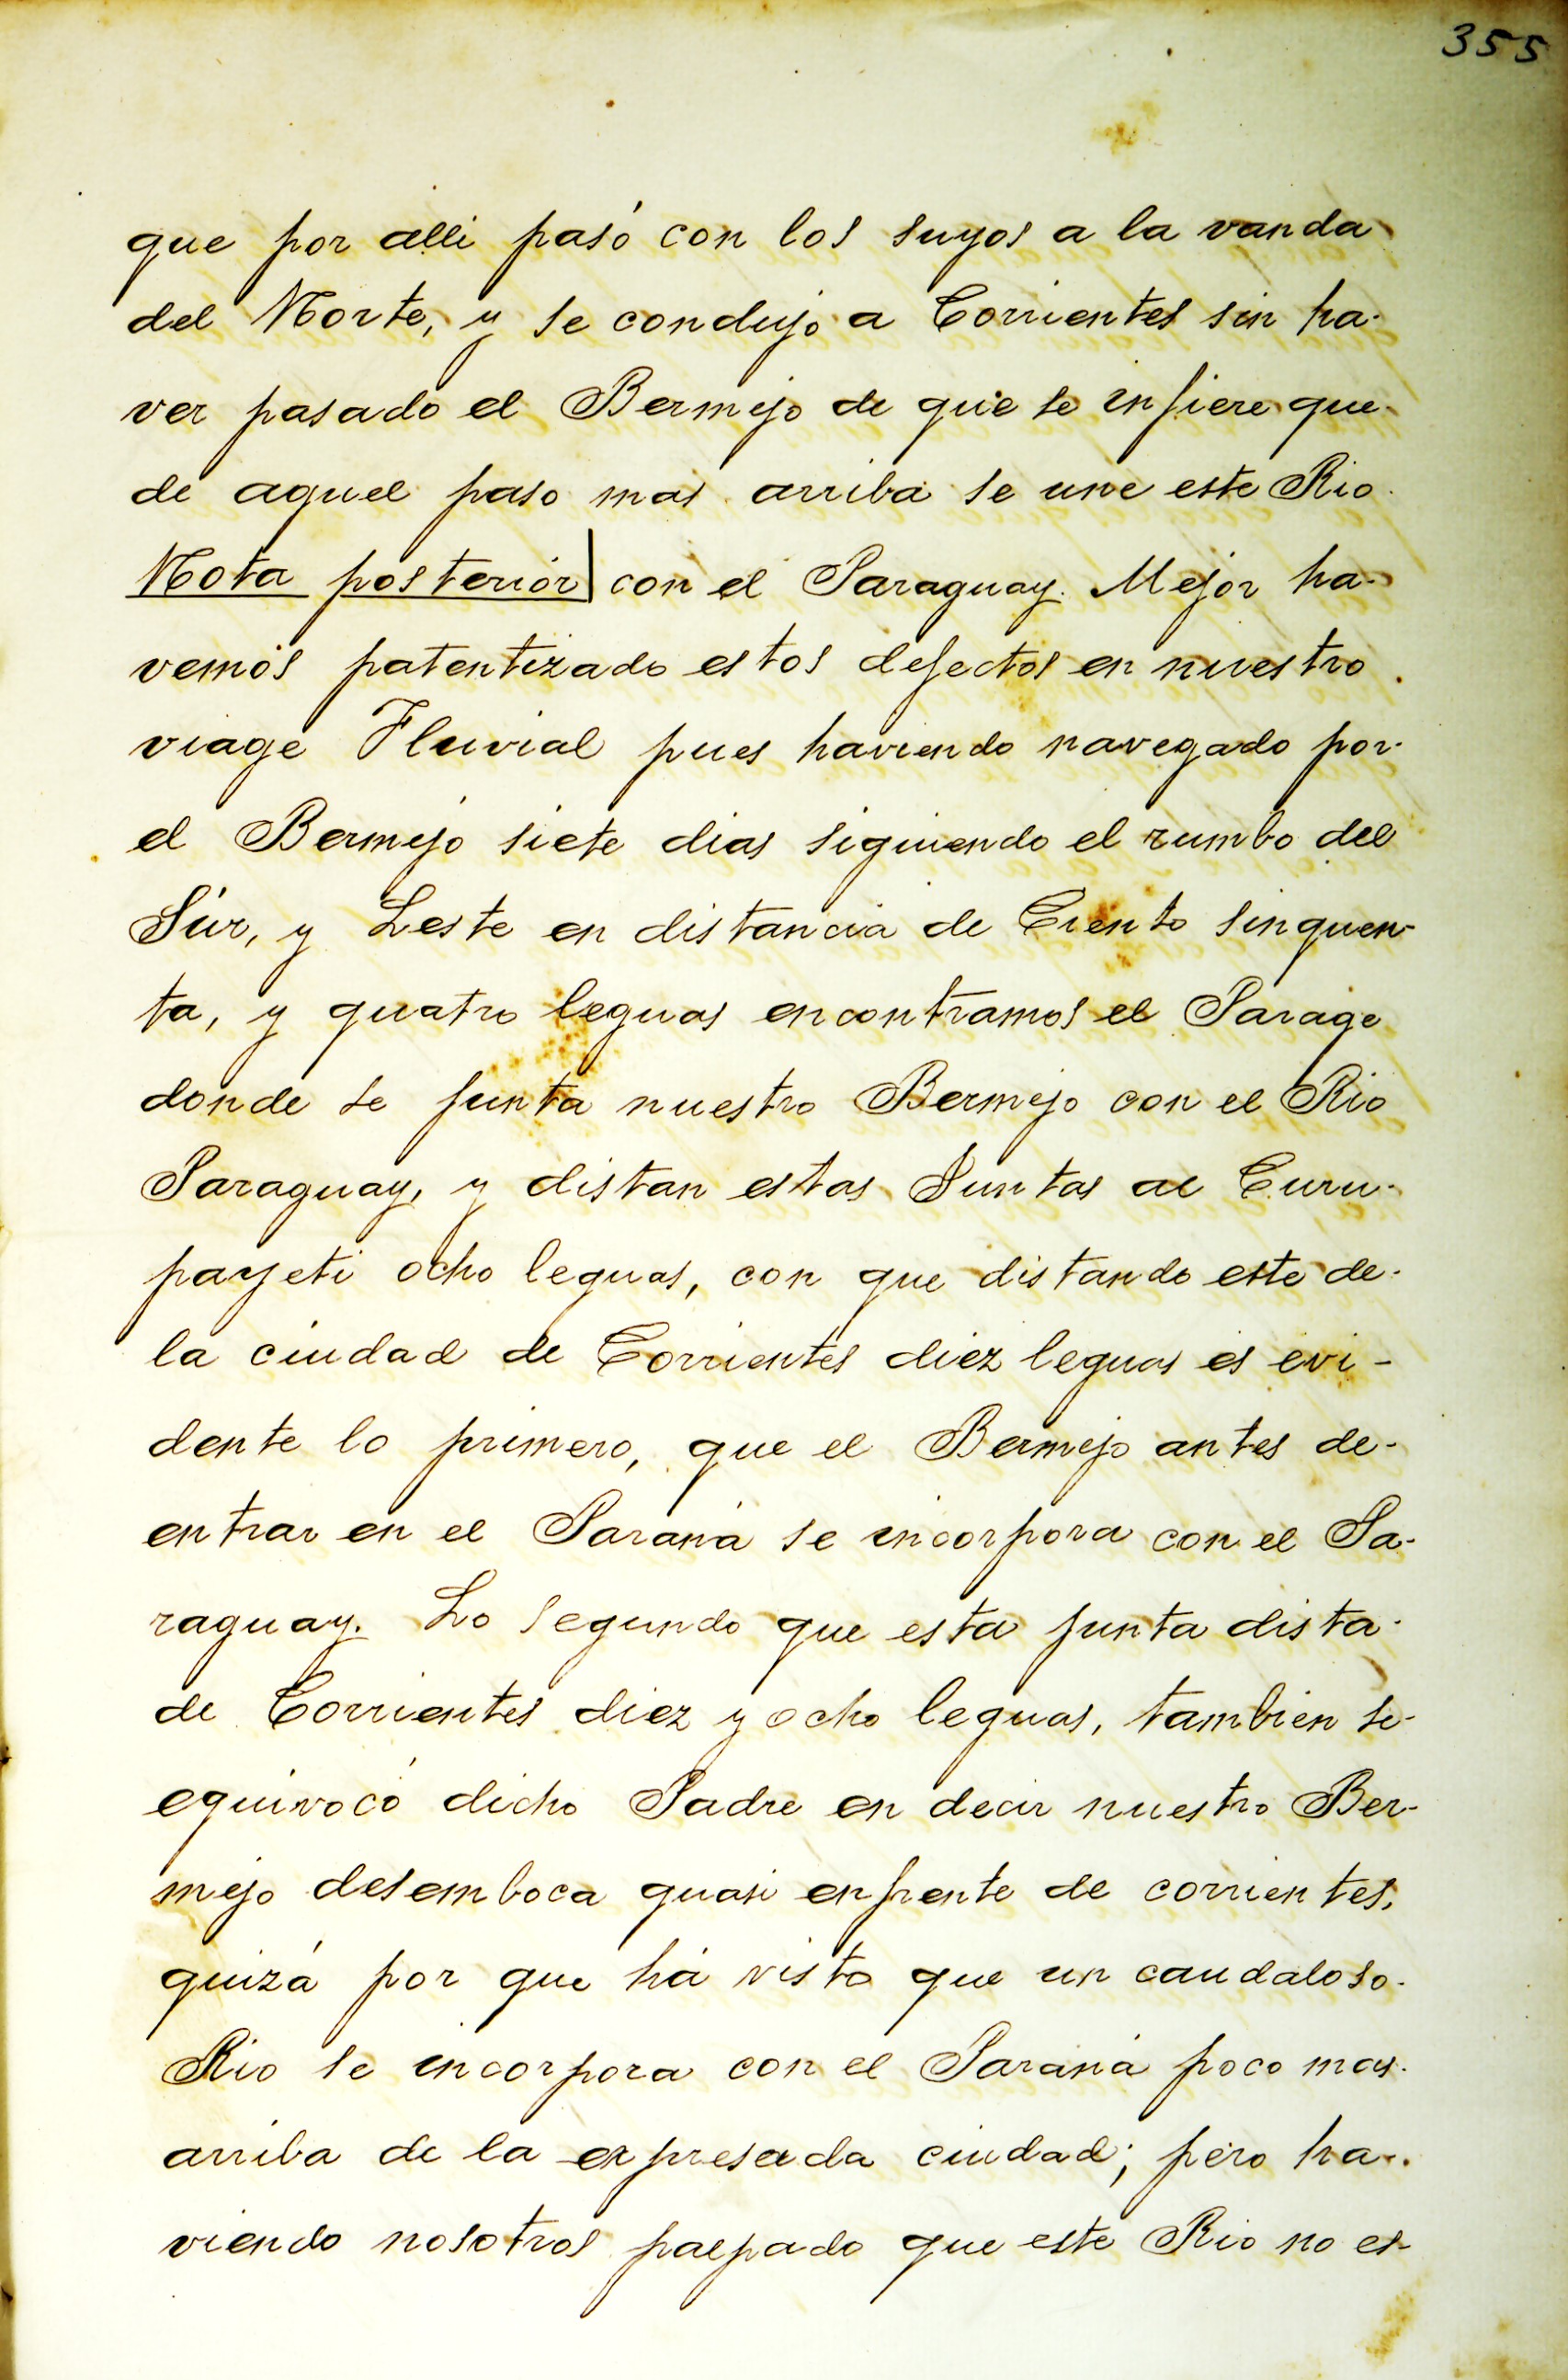 355
que por alli pasó con los suyos a la vanda
del Norte, y se condujo a Corrientes sin ha-
ver pasado el Bermejo de que se infiere que
de aquel paso mas arriba se une este Rio
Nota posterior| con el Paraguay. Mejor ha-
vemos patentizado estos defectos en nuestro
viage Fluvial pues haviendo navegado por
el Bermejo siete dias siguiendo el rumbo del
Sur, y Leste en distancia de Ciento sinquen-
ta, y quatro leguas encontramos el Parage
donde se junta nuestro Bermejo con el Rio
Paraguay, y distan estas Juntas al Curu-
payeti ocho leguas, con que distando este de
la ciudad de Corrientes diez leguas es evi-
dente lo primero, que el Bermejo antes de
entrar en el Paraná se incorpora con el Pa-
raguay. Lo segundo que esta junta dista
de Corrientes diez y ocho leguas, tambien se
equivocó dicho Padre en decir nuestro Ber-
mejo desemboca quasi enfrente de corrientes,
quizá por que há visto que un caudaloso
Rio se incorpora con el Paraná poco mas
arriba de la expresada ciudad; pero ha-
viendo nosotros palpado que este Rio no es